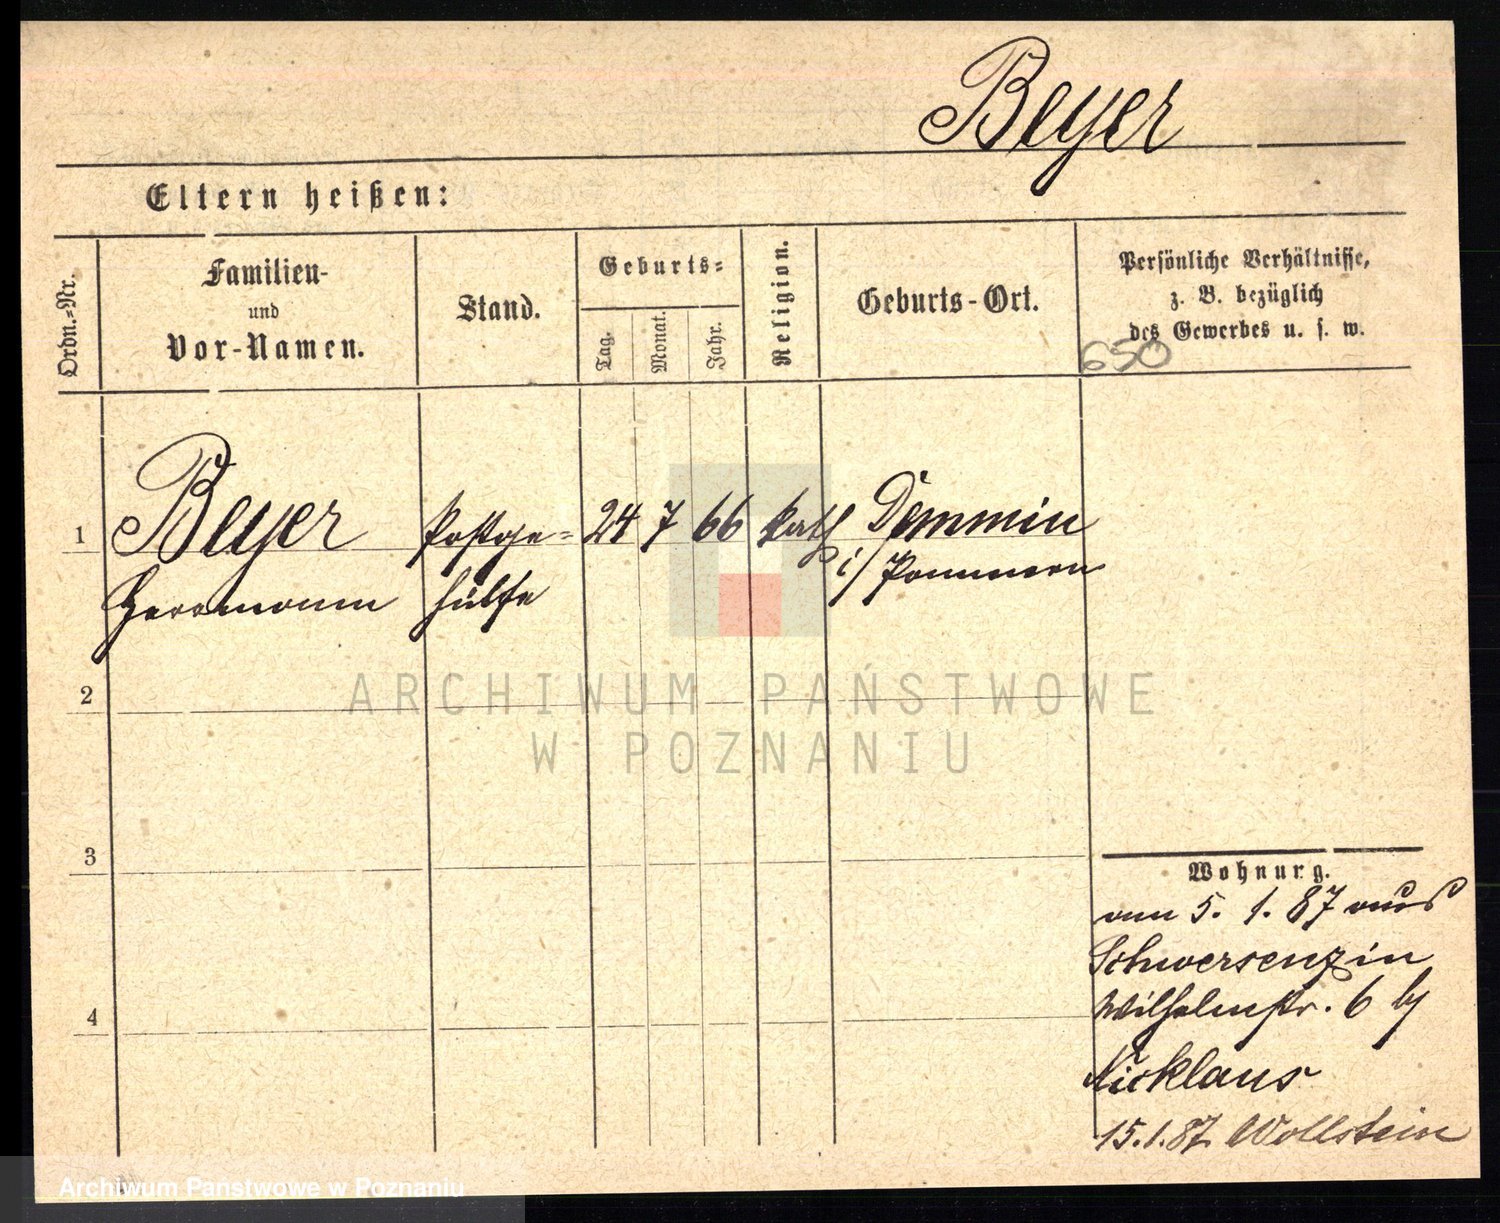 Beyer
Eltern heißen:
Ordn.-Nr.
Familien-
und
Vor-Namen.
Stand.
Geburts-
Tag.
Monat.
Jahr.
Religion.
Geburts-Ort.
Persönliche Verhältnisse,
z. B. bezüglich
des Gewerbes u. s. w.
650
1
Beyer
Herrmann
Postge=
hülfe
24 7 66
kath
Demmin
i/Pommern
2
ARCHIWUM PAŃSTWOWE
W POZNANIU
3
4
Wohnung.
am 5. 1. 87 aus
Schwersenz in
Wilhelmstr. 6 b/
Nicklaus
15.1.87. Wollstein
Archiwum Państwowe w Poznaniu